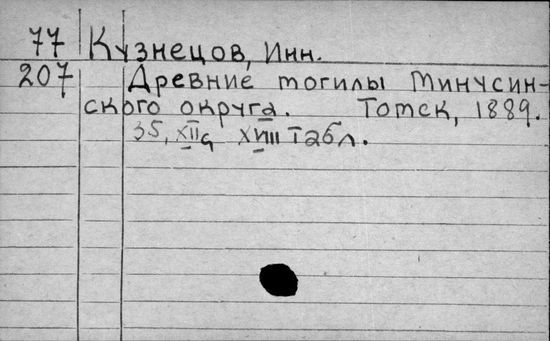 77 Кузнецов, Инн.
207 Древние могилы Минусин-
ского округа. Томск, 1889.
35, XII с, XVIII табл.